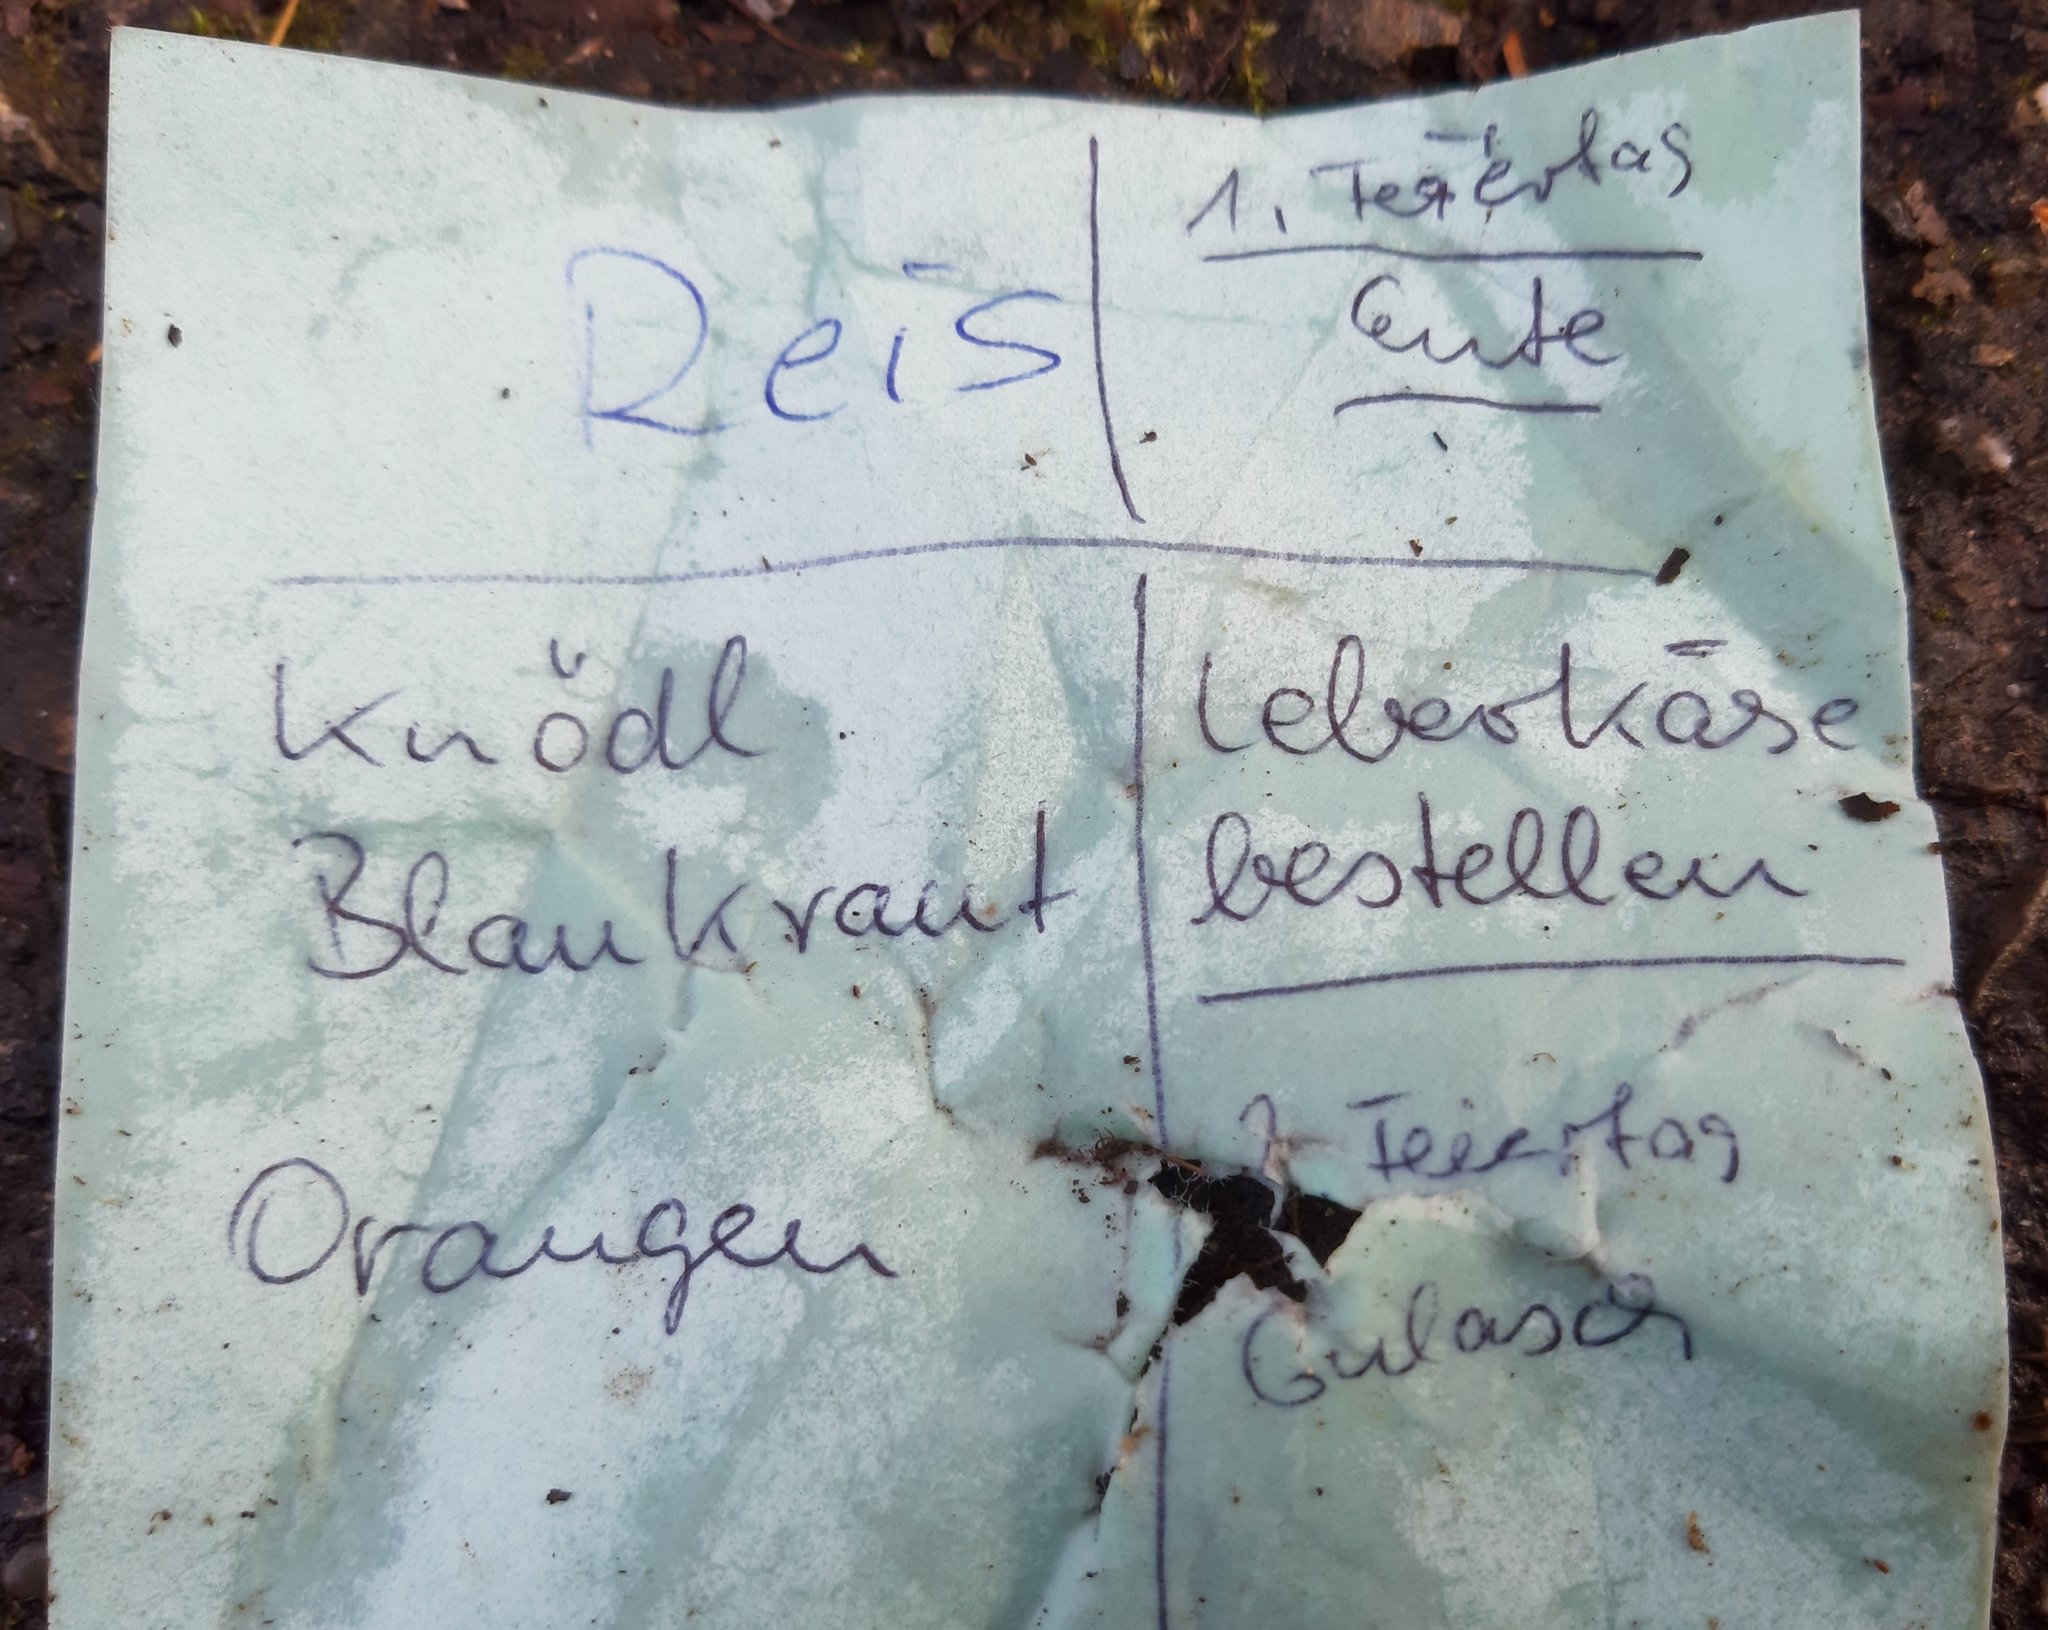 Reis
1. Feiertag
Ente
Knödl
Blaukraut
Orangen
Leberkäse
bestellen
2. Feiertag
Gulasch